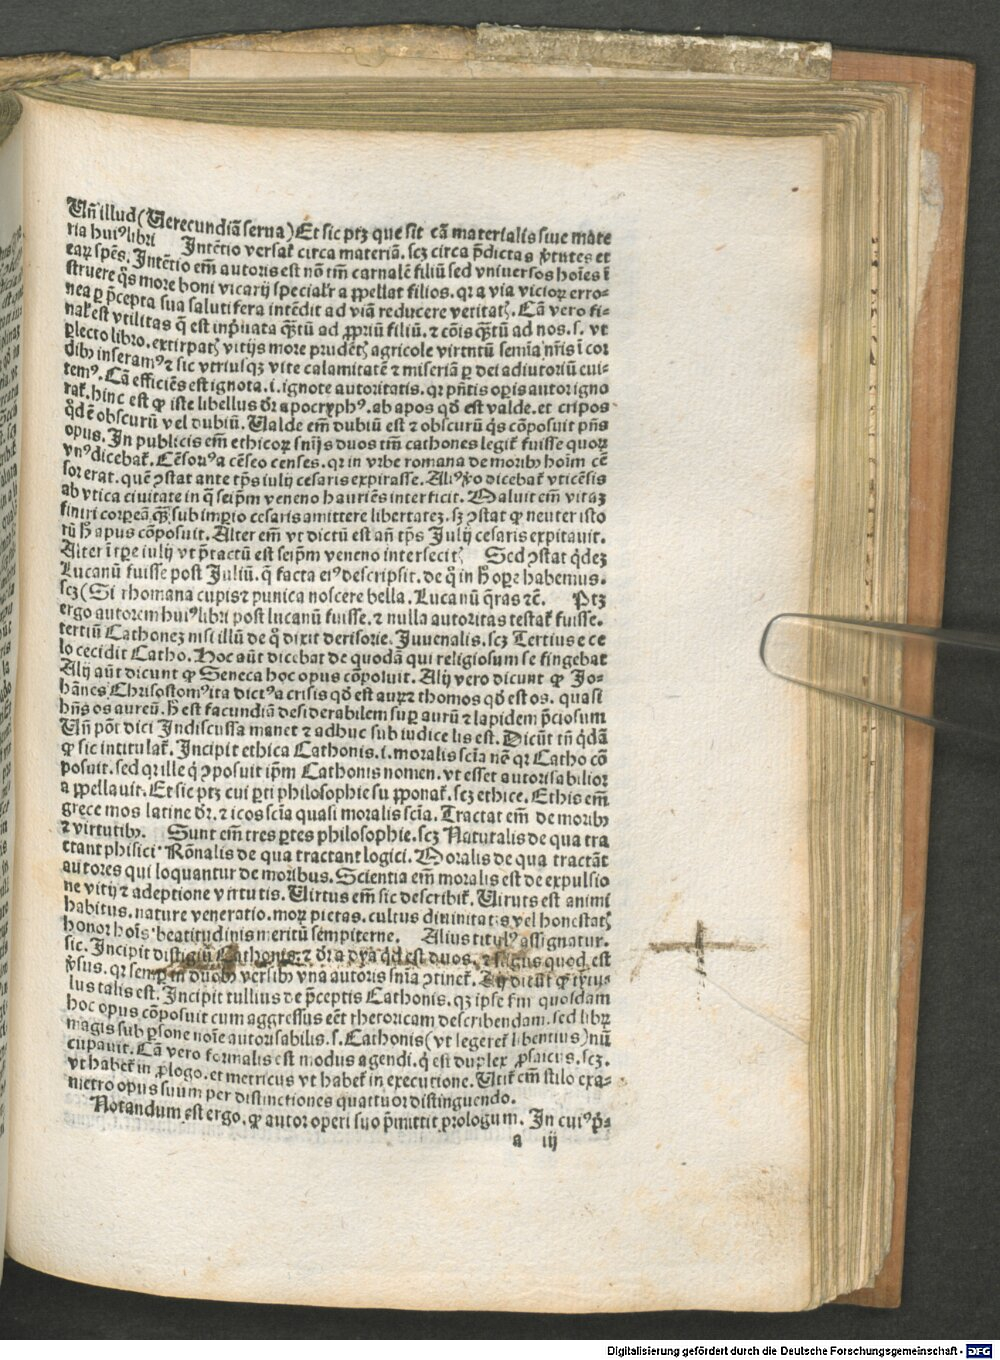 Un̄ illud (Uerecundiā serua) Et sic ptꝫ que sit cā materialis siue mate
ria huiꝰ libri Intētio versat̄ circa materiā. scꝫ circa p̄dictas v̓tutes et
eaꝝ spēs. Intētio em̄ autoris est nō tm̄ carnalē filiū sed vniuersos hoīes ī
struere q̓s more boni vicarij specialr̄ appellat filios. qr a via vicioꝝ erro-
nea ꝑ p̄cepta sua salutifera intēdit ad viā reducere veritat̄. Cā vero fi-
nal̄ est vtilitas q̄ est inp̓uata q̄stū ad ꝓpriū filiū. ⁊ cōis q̄stū ad nos. s. vt
ꝑlecto libro. extirpat̄ vitijs more prudēt̄ agricole virtutū semīa nr̄is ī cor
dibꝫ inseramꝰ ⁊ sic vtriusqꝫ vite calamitatē ⁊ miseriā ꝑ dei adiutoriū cui-
temꝰ. Cā efficiēs est ignota. i. ignote autoritatis. qr pn̄tis oꝑis autor igno
rat̄. hinc est ꝙ iste libellus dr̄ apocryphꝰ. ab apos qd̓ est valde. et cripos
q̓d ē obscurū vel dubiū. Ualde em̄ dubiū est ⁊ obscurū q̓s cōposuit pn̄s
opus. In publicis em̄ ethicoꝝ sn̄ijs duos tm̄ cathones legit̄ fuisse quoꝝ
vnꝰ dicebat̄. Cēsoriꝰ a cēseo censes. qr in vrbe romana de moribꝫ hoīm cē
sor erat. quē ꝯstat ante tp̄s iulij cesaris expirasse. Aliꝰ v̓o dicebat̄ vticēsis
ab vtica ciuitate in q̄ seip̄m veneno hauriēs interficit. Maluit em̄ vitaꝫ
finiri corpeā qꝫ sub imꝑio cesaris amittere libertateꝫ. sꝫ ꝯstat ꝙ neuter isto
rū h̓ apus cōposuit. Alter em̄ vt dictū est an̄ tp̄s Julij cesaris expitauit.
Alter ī tꝑe iulij vt p̄tactū est seip̄m veneno intersecit̄ Sed ꝯstat q̓deꝫ
Lucanū fuisse post Juliū. q̓ facta eiꝰ descripsit. de q̓ in h̓ oꝑe habemus.
scꝫ (Si rhomana cupis ⁊ punica noscere bella. Lucanū q̄ras ⁊c̄. Ptꝫ
ergo autorem huiꝰ libri post lucanū fuisse. ⁊ nulla autoritas testat̄ fuisse.
tertiū Cathoneꝫ nisi illū de q̓ dixit derisorie. Juuenalis. scꝫ Tertius e ce
lo cecidit Catho. Hoc aūt dicebat de quodā qui religiosum se fingebat
Alij aūt dicunt ꝙ Seneca hoc opus cōposuit. Alij vero dicunt ꝙ Jo-
hānes Chrisostomꝰ ita dictꝰ a crisis qd̓ est auꝝ ⁊ thomos qd̓ est os. quasi
hn̄s os aureū. h̓ est facundiā desiderabilem suꝑ aurū ⁊ lapidem p̄ciosum
Un̄ pōt dici Indiscussa manet ⁊ adhuc sub iudice lis est. Dicūt tn̄ q̓dā
ꝙ sic intitulat̄. Incipit ethica Cathonis. i. moralis scīa nē qr Catho cō
posuit. sed qr ille q̓ ꝯposuit ip̄m Cathonis nomen. vt esset autorisabilior
appellauit. Et sic ptꝫ cui ꝑti philosophie supponat̄. scꝫ ethice. Ethis em̄
grece mos latine dr̄. ⁊ icos scīa quasi moralis scīa. Tractat em̄ de moribꝫ
⁊ virtutibꝫ. Sunt em̄ tres ꝑtes philosophie. scꝫ Naturalis de qua tra
ctant phisici. Rōnalis de qua tractant logici. Moralis de qua tractāt
autores qui loquuntur de moribus. Scientia em̄ moralis est de expulsio
ne vitij ⁊ adeptione virtutis. Uirtus em̄ sic describit̄. Uirtus est animi
habitus. nature veneratio. moꝝ pietas. cultus diuinitatis vel honestat̄
honor hoīs. beatitudinis meritū sempiterne. Alius titulꝰ assignatur.
sic. Incipit distigiū Cathonis. ⁊ dr̄ a dya qd̓ est duos. ⁊ stigus quod est
v̓sus. qr semꝑ in duobꝫ versibꝫ vna autoris sn̄ia ꝯtinet̄. Alij dicūt ꝙ titu-
lus talis est. Incipit tullius de p̄ceptis Cathonis. qꝫ ipse fm̄ quosdam
hoc opus cōposuit cum aggressus eēt rhetoricam describendam. sed libꝝ
magis sub ꝑsone noīe autorisabilis. s. Cathonis (vt legeret̄ libentius) nū
cupauit. Cā vero formalis est modus agendi. q̓ est duplex ꝓsaicus. scꝫ.
vt habet̄ in ꝓlogo. et metricus vt habet̄ in executione. Utit̄ em̄ stilo exa-
metro opus suum per distinctiones quattuor distinguendo.
Notandum est ergo. ꝙ autor operi suo p̄mittit prologum. In cuiꝰ p̓-
a iij
Digitalisierung gefördert durch die Deutsche Forschungsgemeinschaft - DFG